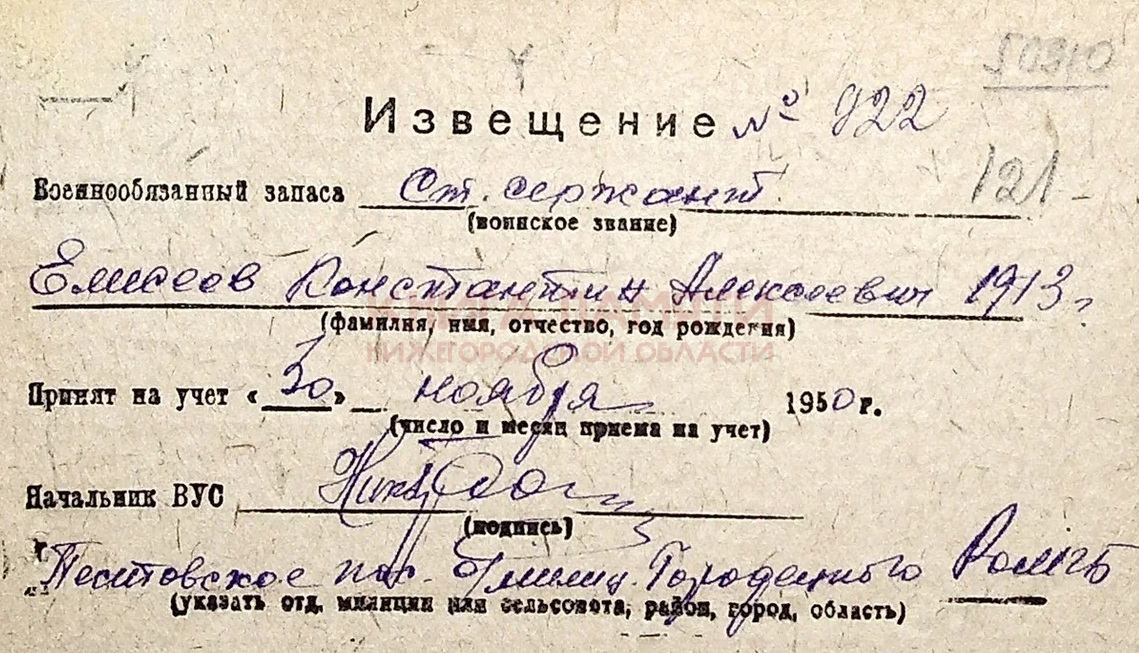 50310
Извещение № 922
Военнообязанный запаса Ст. сержант 121
(воинское звание)
Елисеев Константин Алексеевич 1913 г
КНИГА ПАМЯТИ
(фамилия, имя, отчество, год рождения)
НИЖЕГОРОДСКОЙ ОБЛАСТИ
Принят на учет «30» ноября 1950 г.
(число и месяц приема на учет)
Начальник ВУС
(подпись)
пос. Городецкого
(указать отд. милиции или сельсовета, район, город, область)